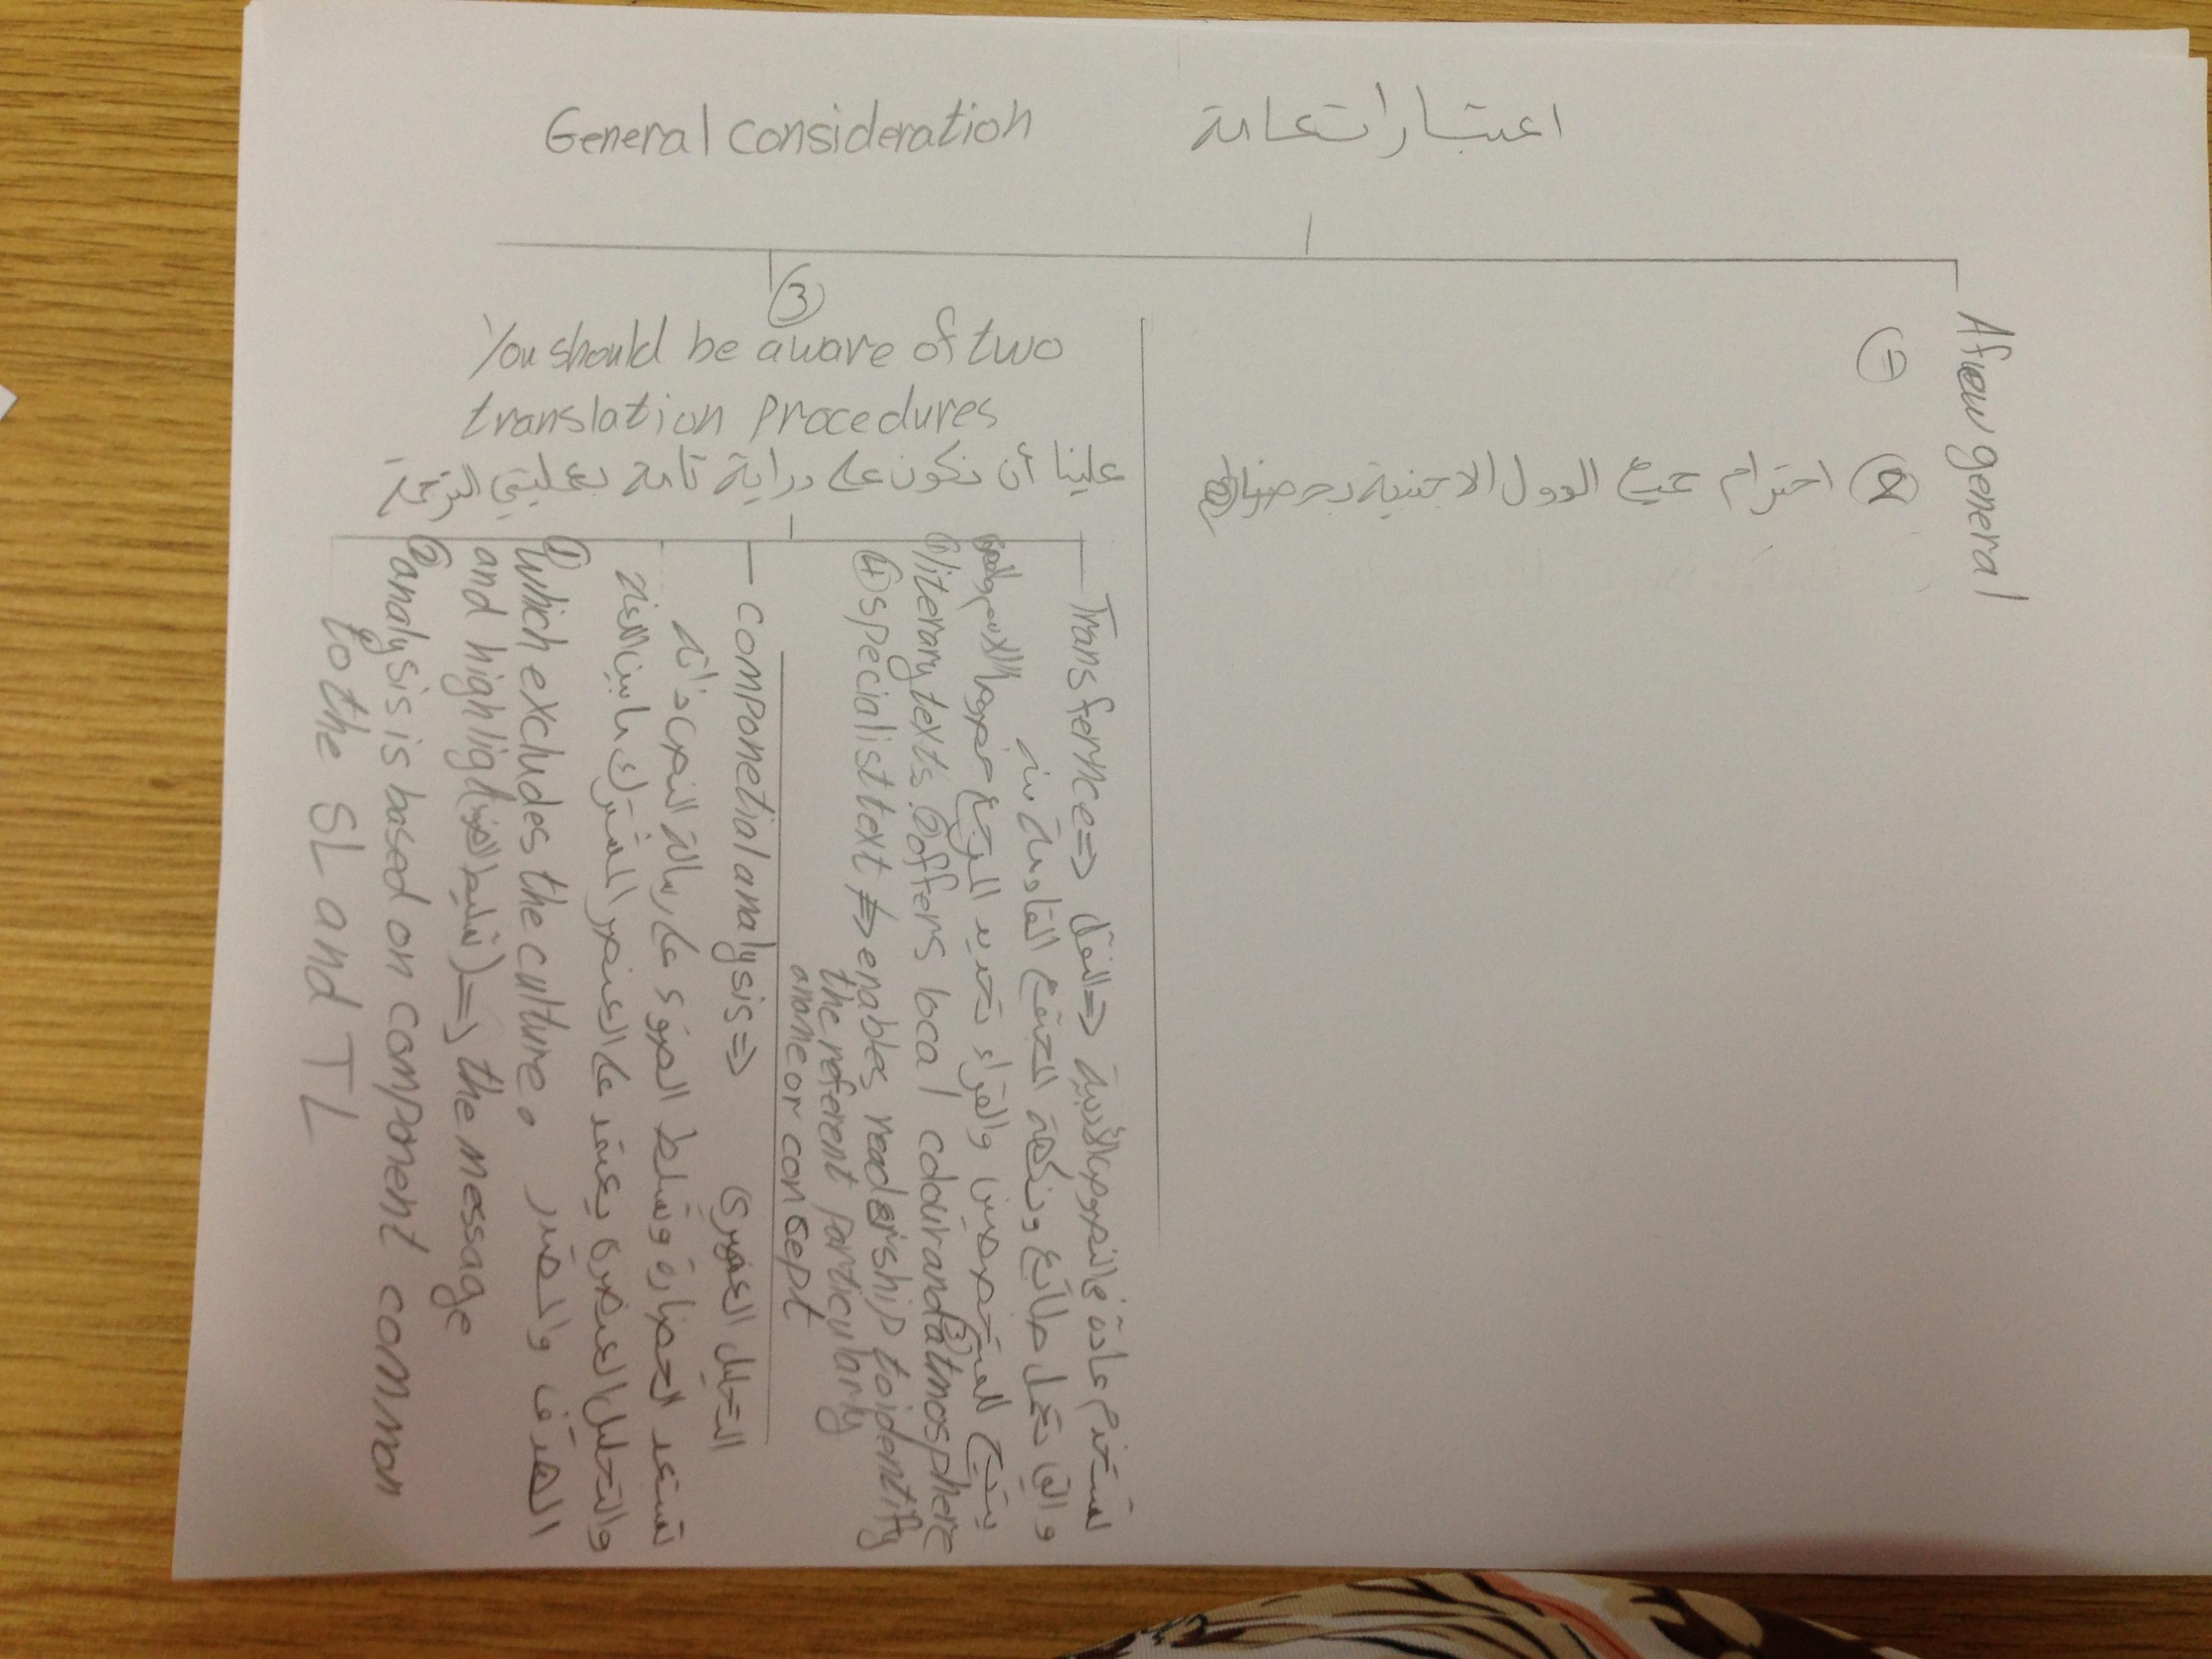 General consideration
اعتبارات عامة
A few general
①
② احترام جميع الدول الاجنبية
③
You should be aware of two
translation procedures
علينا أن نكون على دراية تامة بعمليتي الترجمة
Transfernce => النقل => تستخدم عادة في النصوص الأدبية
والتي تحمل طابع ونكهة المجتمع القادمة منه
يتيح للمتخصصين والقراء تحديد المرجع خصوصا الاسم والمفهوم
① literary texts. ② offers local colour and ③ atmosphere
④ specialist text => enables readership to identify
the referent particularly
a name or consept
componetial analysis => التحليل العنصري
تستبعد الحضارة وتسلط الضوء على رسالة النص ذاته
والتحليل العنصري يعتمد على العنصر المشترك ما بين اللغة
الهدف والمصدر
① which excludes the culture.
and highlight (تسليط الضوء) => the message
② analysis is based on component common
to the SL and TL